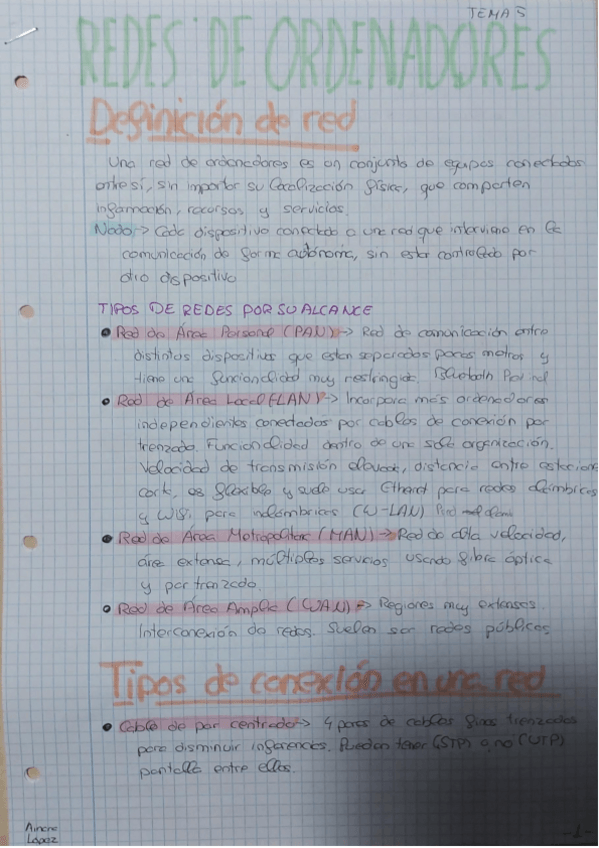 TEMA 5
REDES DE ORDENADORES
Definición de red
Una red de ordenadores es un conjunto de equipos conectados
entre sí, sin importar su localización física, que comparten
información, recursos y servicios.
Nodo -> Cada dispositivo conectado a una red que interviene en la
comunicación de forma autónoma, sin estar controlado por
otro dispositivo
TIPOS DE REDES POR SU ALCANCE
• Red de Área Personal (PAN) -> Red de comunicación entre
distintos dispositivos que estan separados pocos metros y
tiene una funcionalidad muy restringida. Bluetooth
• Red de Área Local (LAN) -> Incorpora más ordenadores
independientes conectados por cables de conexión por
trenzado. Funcionalidad dentro de una sola organización.
Velocidad de transmisión elevada, distancia entre estaciones
corta, es flexible y suele usar Ethernet para redes alámbricas
y Wifi para inalámbricas (W-LAN) Red
• Red de Área Metropolitana (MAN) -> Red de alta velocidad,
área extensa, múltiples servicios usando fibra óptica
y par trenzado.
• Red de Área Amplia (WAN) -> Regiones muy extensas.
Interconexión de redes. Suelen ser redes públicas
Tipos de conexión en una red
• Cable de par centrado -> 4 pares de cables finos trenzados
para disminuir inferencias. Pueden tener (STP) o no (UTP)
pantalla entre ellos.
Ainara
López
-1-